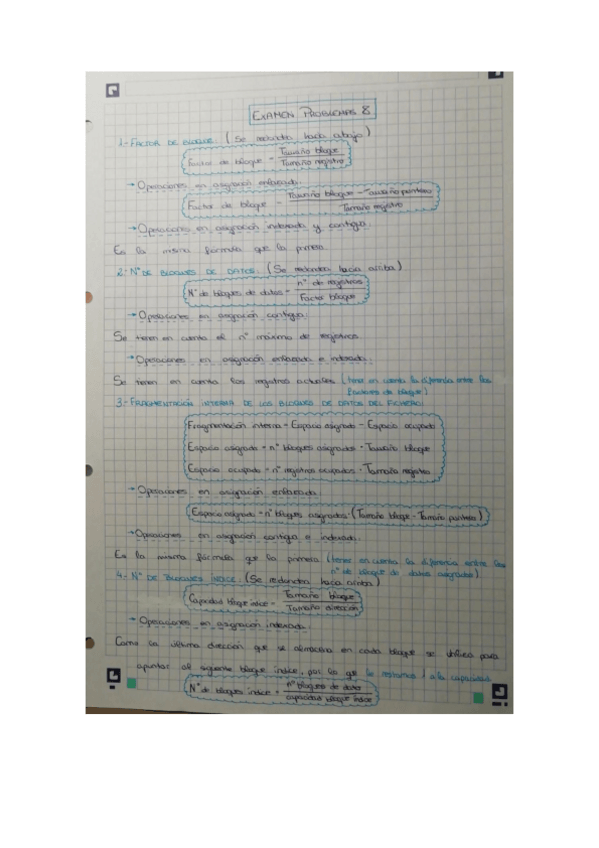 EXAMEN PROBLEMAS 8
1.- FACTOR DE BLOQUE (Se redondea hacia abajo)
Factor de bloque = Tamaño bloque / Tamaño registro
→ Operaciones en asignación enlazada.
Factor de bloque = Tamaño bloque - Tamaño puntero / Tamaño registro
→ Operaciones en asignación indexada y contigua.
Es la misma fórmula que la primera.
2.- Nº DE BLOQUES DE DATOS. (Se redondea hacia arriba)
Nº de bloques de datos = nº de registros / Factor bloque
→ Operaciones en asignación contigua.
Se tienen en cuenta el nº máximo de registros.
→ Operaciones en asignación enlazada e indexada.
Se tienen en cuenta los registros actuales (tener en cuenta la diferencia entre los
factores de bloque)
3.- FRAGMENTACIÓN INTERNA DE LOS BLOQUES DE DATOS DEL FICHERO.
Fragmentación interna = Espacio asignado - Espacio ocupado
Espacio asignado = nº bloques asignados · Tamaño bloque
Espacio ocupado = nº registros ocupados · Tamaño registro
→ Operaciones en asignación enlazada.
Espacio asignado = nº bloques asignados · (Tamaño bloque - Tamaño puntero)
→ Operaciones en asignación contigua e indexada.
Es la misma fórmula que la primera (tener en cuenta la diferencia entre los
nº de bloque de datos asignados)
4.- Nº DE BLOQUES ÍNDICE. (Se redondea hacia arriba)
Capacidad bloque índice = Tamaño bloque / Tamaño dirección
→ Operaciones en asignación indexada.
Como la última dirección que se almacena en cada bloque se utiliza para
apuntar al siguiente bloque índice, por lo que le restamos 1 a la capacidad.
Nº de bloques índice = nº bloques de datos / capacidad bloque índice